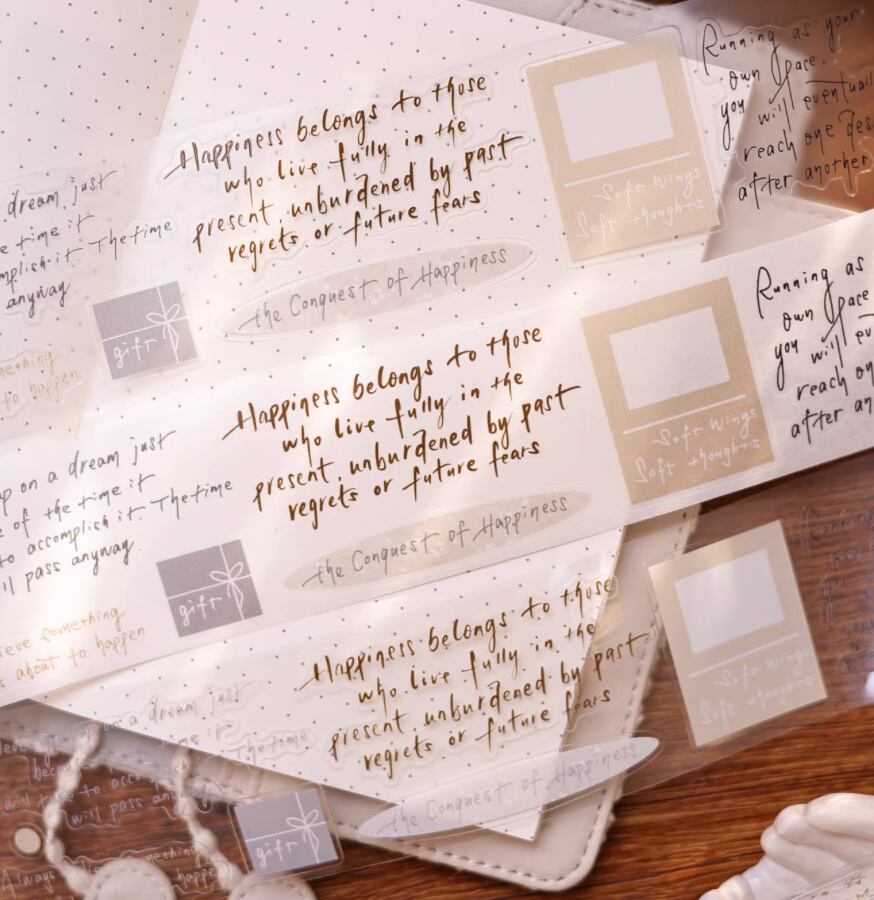 Running as your
own pace.
you will
reach one
after another
Happiness belongs to those
who live fully in the
present, unburdened by past
regrets or future fears
dream just
time it
it. The time
anyway
the Conquest of Happiness
Soft wings
Soft thoughts
gift
to happen
Running as
own pace
you will
reach
after
Happiness belongs to those
who live fully in the
present, unburdened by past
regrets or future fears
on a dream just
of the time it
to accomplish it. The time
pass anyway.
the Conquest of Happiness
Soft wings
Soft thoughts
gift
something
about to happen
Running
Happiness belongs to those
who live fully in the
present, unburdened by past
regrets or future fears
on a dream just
The time
will pass
the Conquest of Happiness
Soft wings
Soft thoughts
gift
Always
something